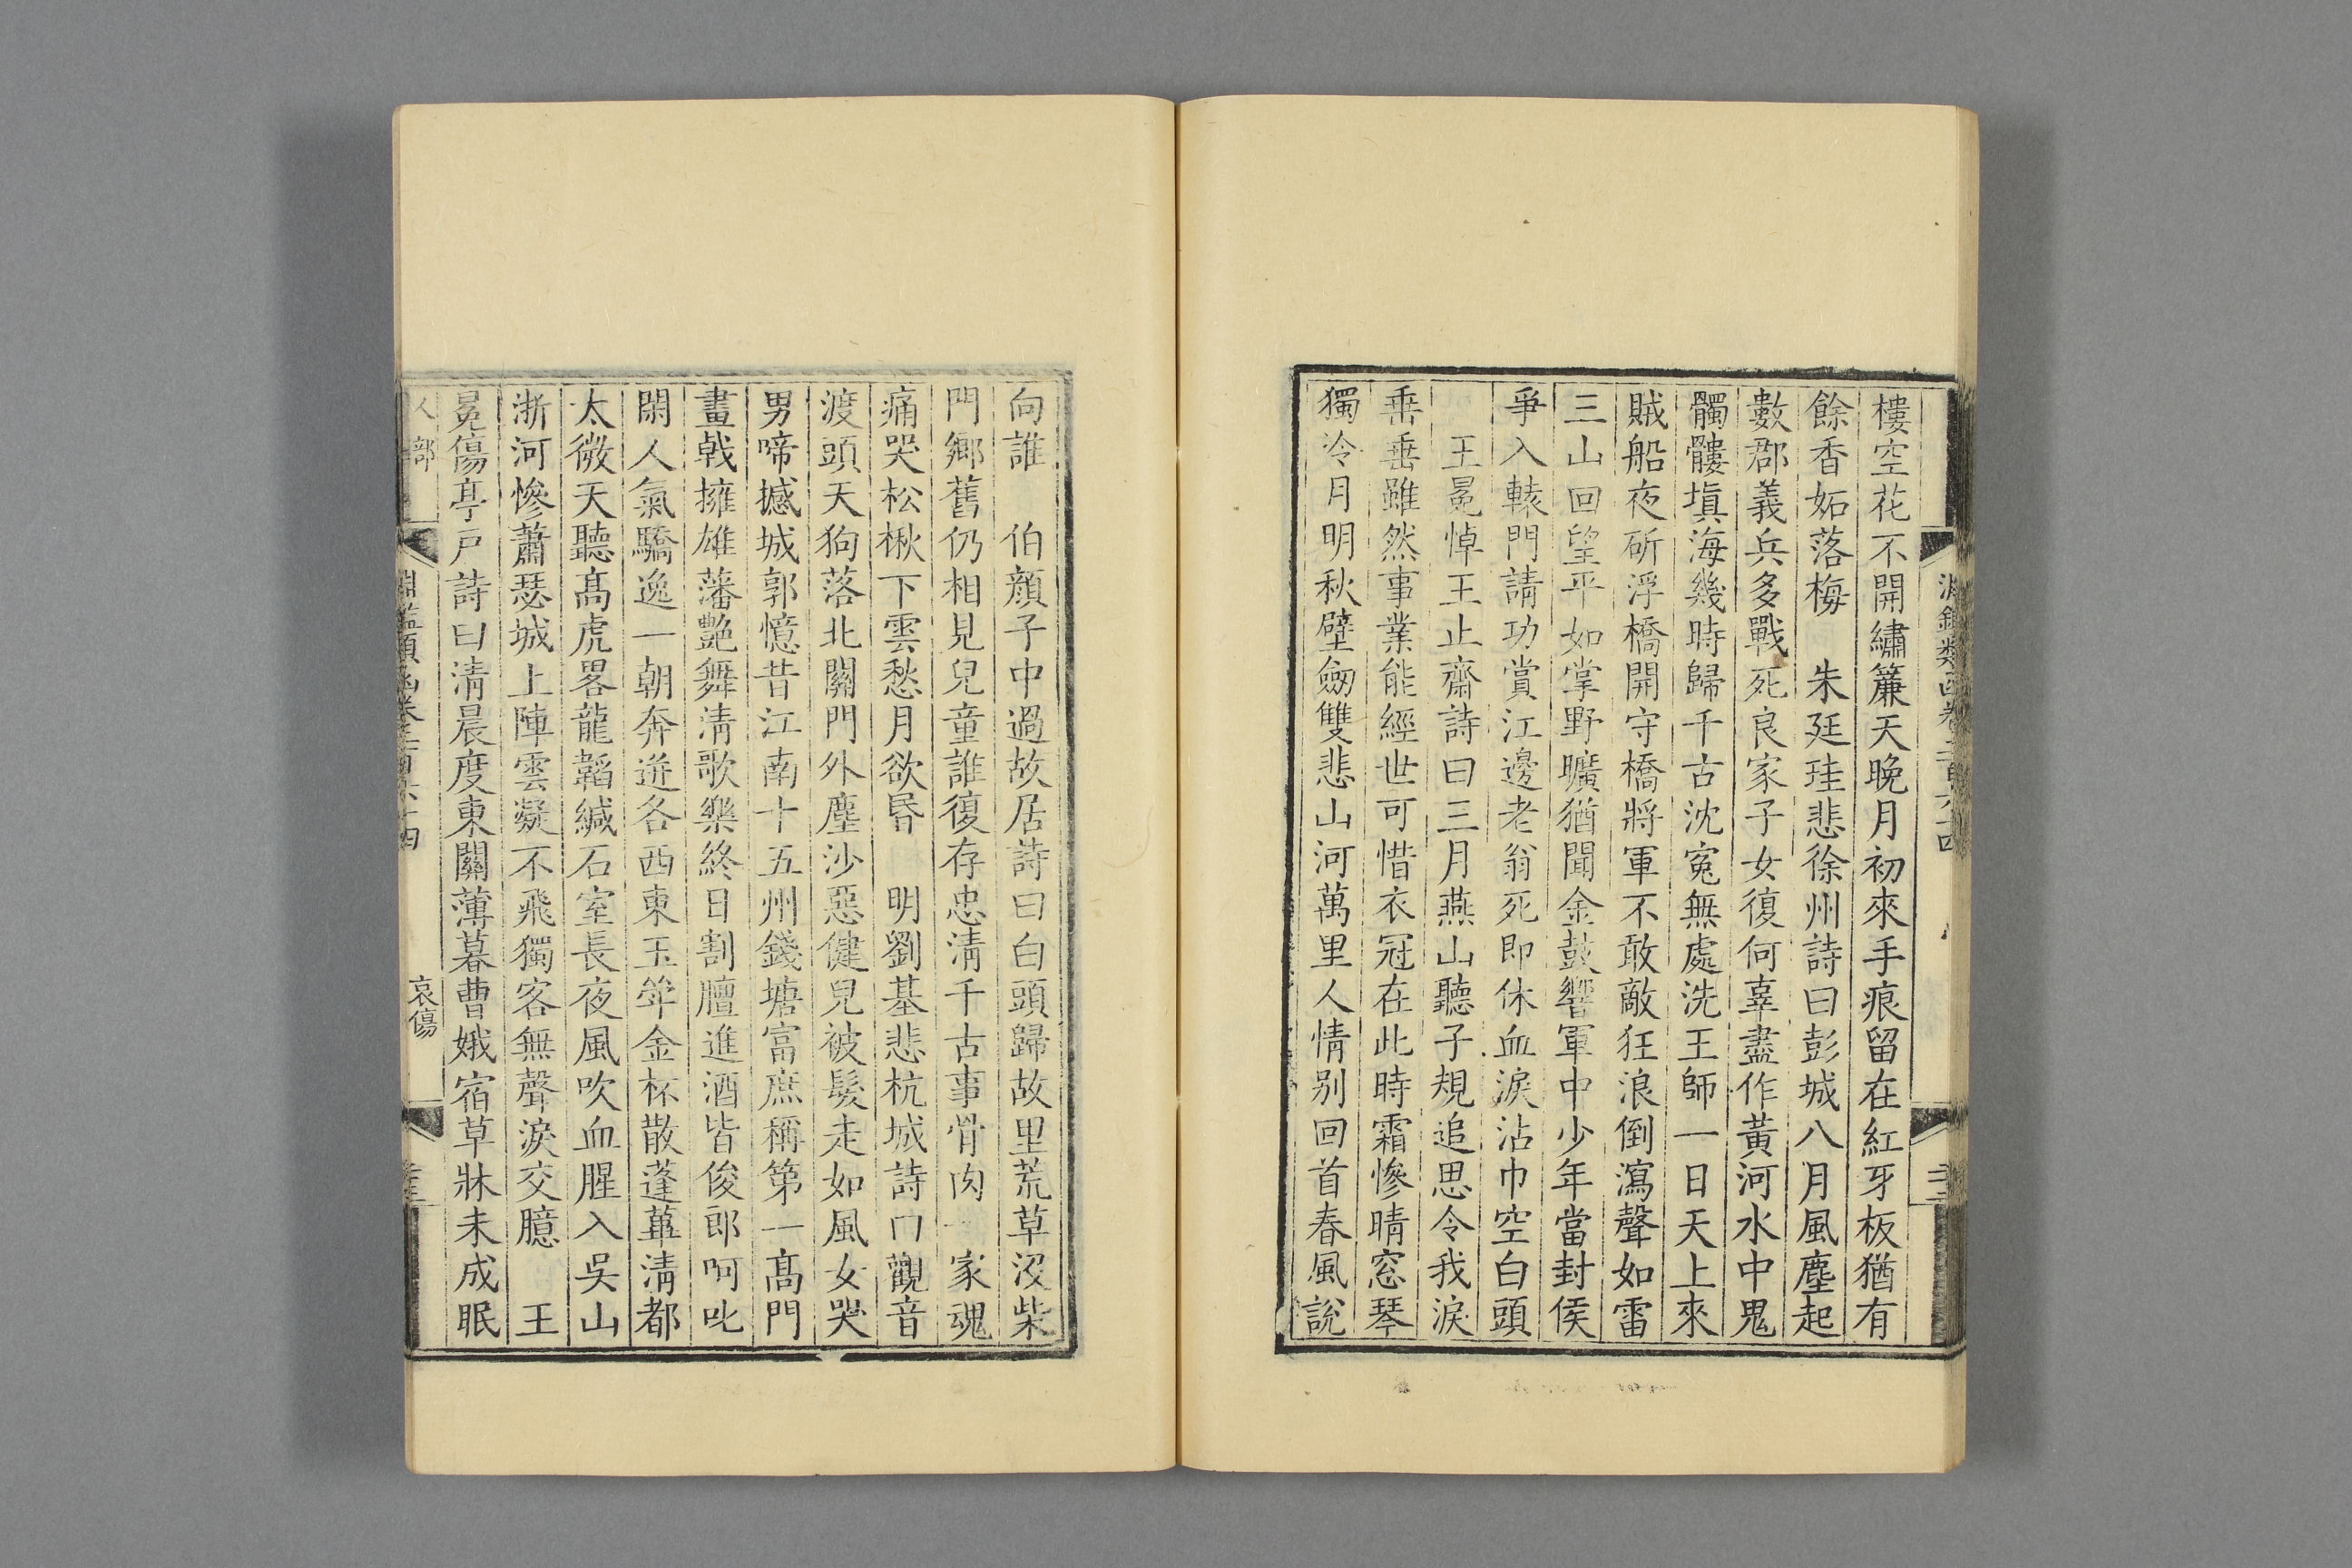 樓空花不開繡簾天晚月初來手痕留在紅牙板猶有
餘香妬落梅　朱廷珪悲徐州詩曰彭城八月風塵起
數郡義兵多戰死良家子女復何辜盡作黃河水中鬼
髑髏塡海幾時歸千古沈寃無處洗王師一日天上來
賊船夜斫浮橋開守橋將軍不敢敵狂浪倒瀉聲如雷
三山回望平如掌野曠猶聞金鼓響軍中少年當封侯
爭入轅門請功賞江邊老翁死即休血淚沾巾空白頭
王冕悼王止齋詩曰三月燕山聽子規追思令我淚
垂垂雖然事業能經世可惜衣冠在此時霜慘晴窓琴
獨冷月明秋壁劒雙悲山河萬里人情别回首春風說
向誰　伯顔子中過故居詩曰白頭歸故里荒草沒柴
門鄉舊仍相見兒童誰復存忠淸千古事骨肉一家魂
痛哭松楸下雲愁月欲昬　明劉基悲杭城詩曰觀音
渡頭天狗落北關門外塵沙惡健兒被髮走如風女哭
男啼撼城郭憶昔江南十五州錢塘富庶稱第一高門
畫戟擁雄藩艷舞淸歌樂終日割膻進酒皆俊郎呵叱
閑人氣驕逸一朝奔迸各西東玉斝金杯散蓬蓽淸都
太微天聽高虎畧龍韜緘石室長夜風吹血腥入吳山
浙河慘蕭瑟城上陣雲凝不飛獨客無聲淚交臆　王
冕傷亭戸詩曰淸晨度東關薄暮曹娥宿草牀未成眠
人部
淵鑑類函卷二百六十四
哀傷